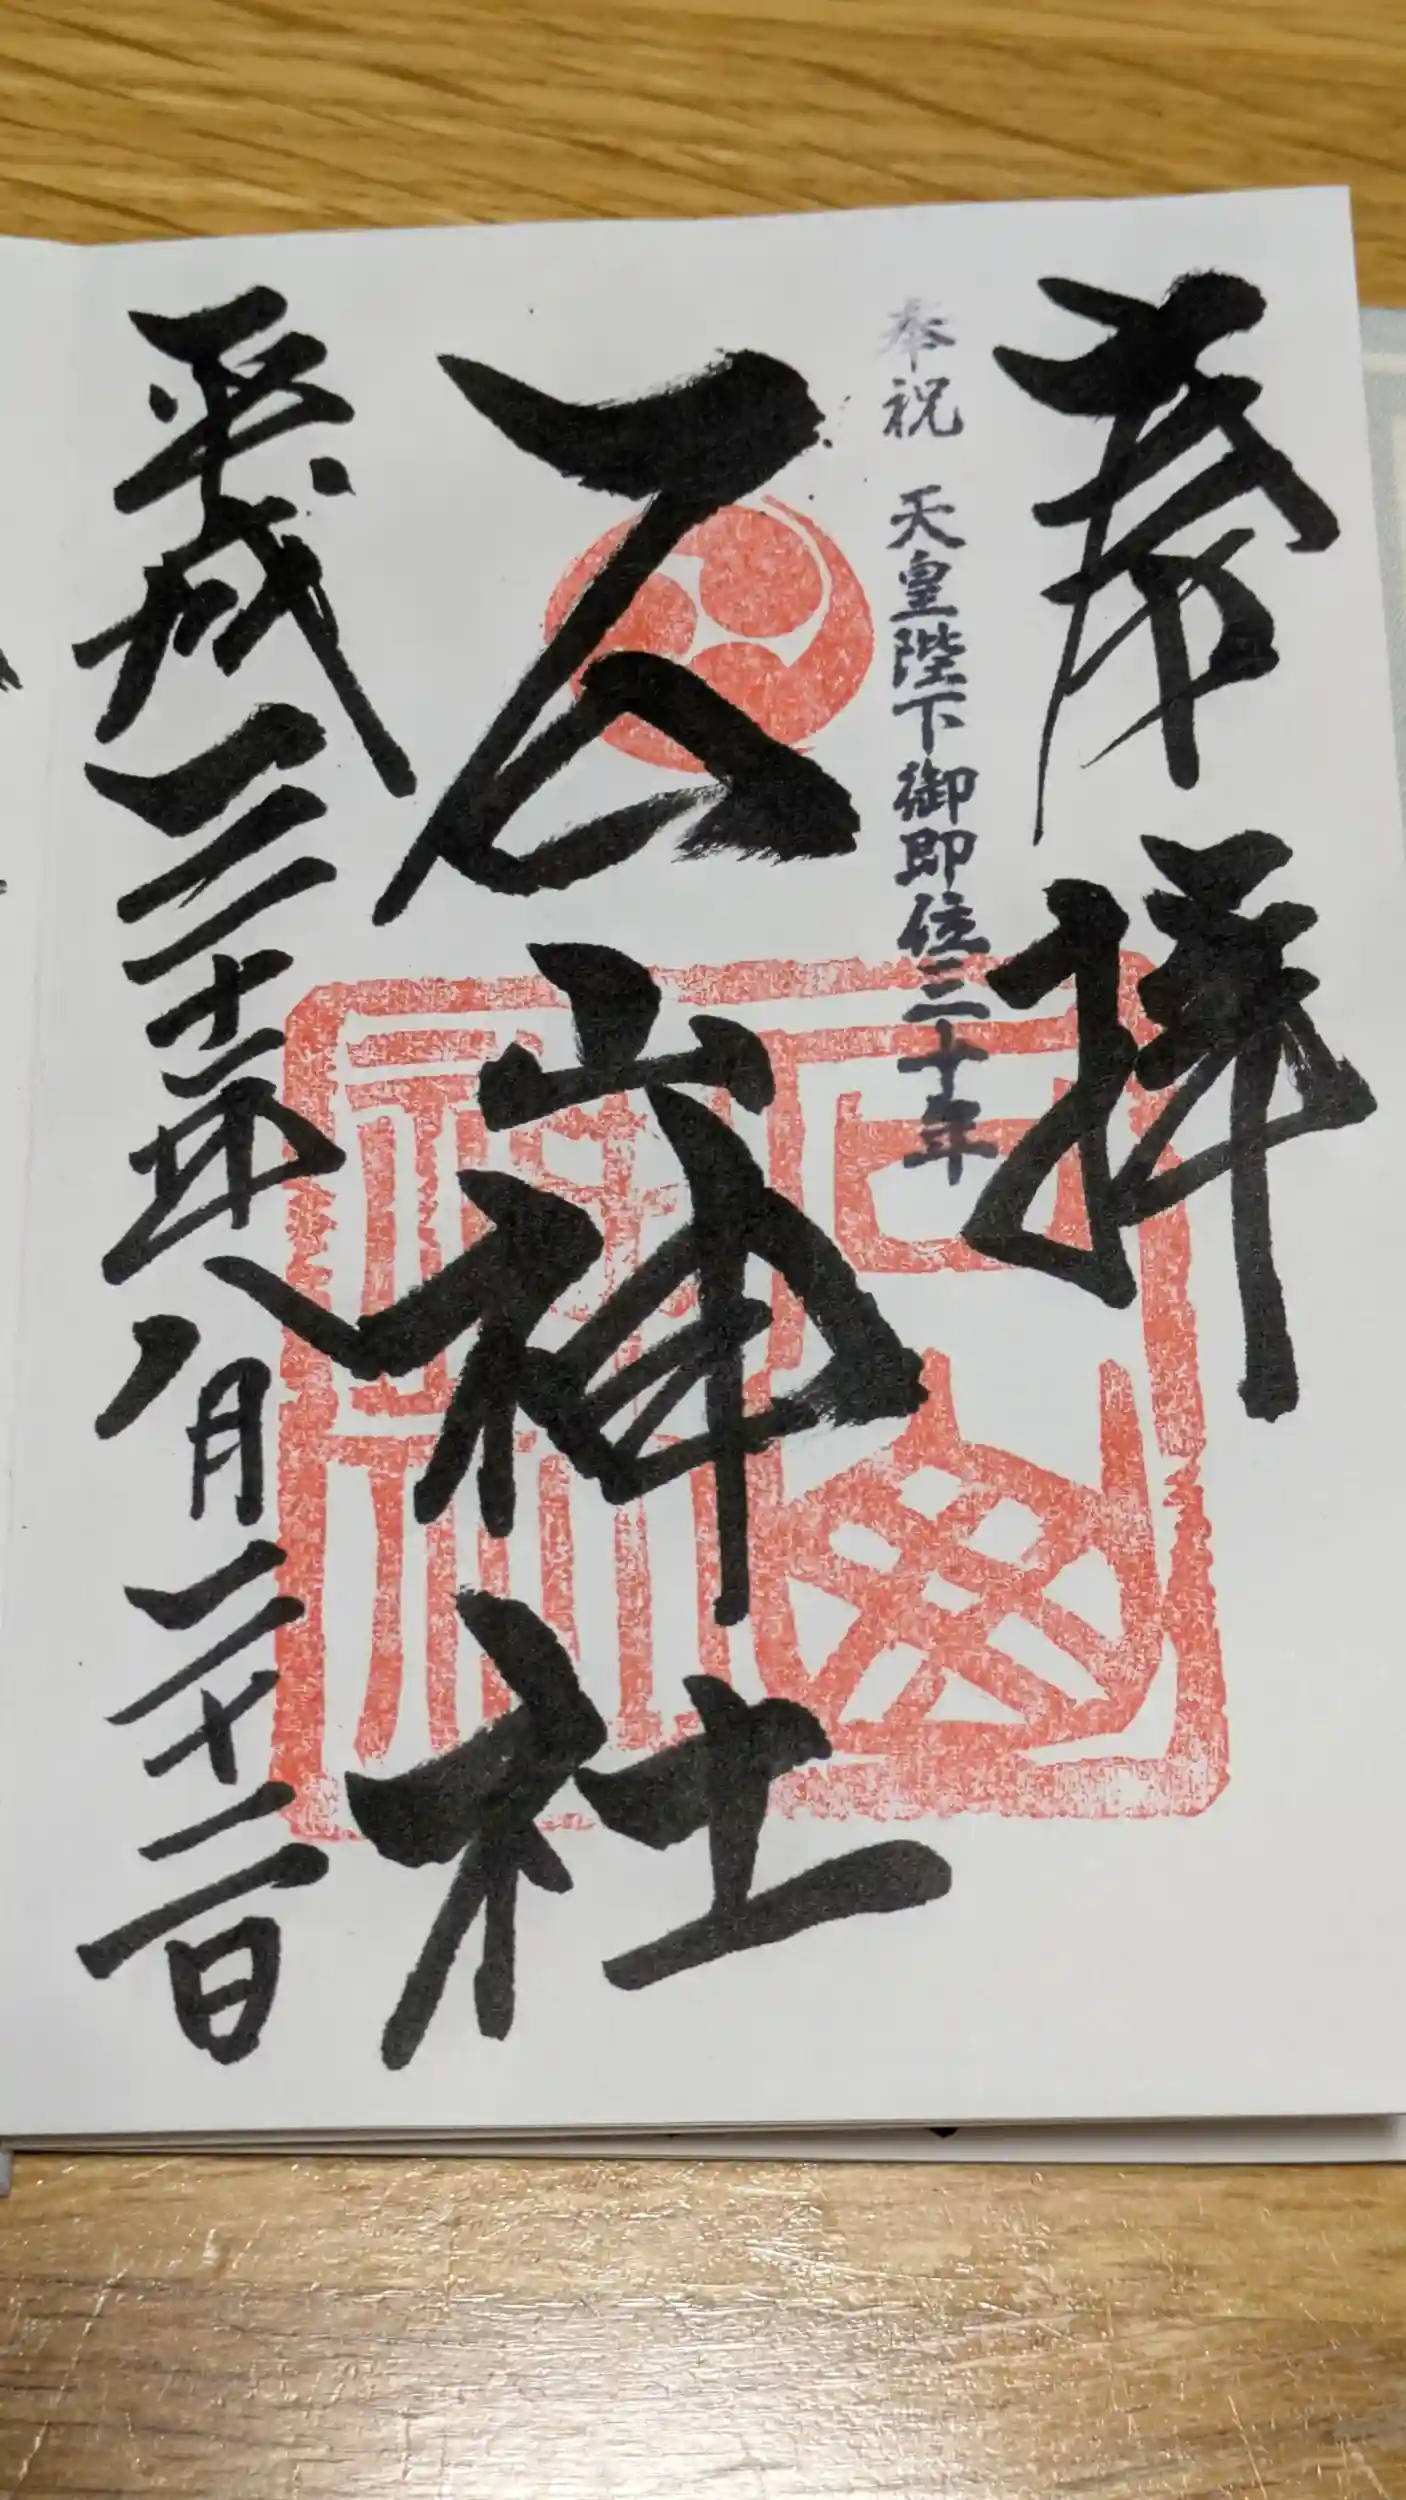 奉拝
奉祝 天皇陛下御即位三十年
石山神社
平成三十年八月二十二日